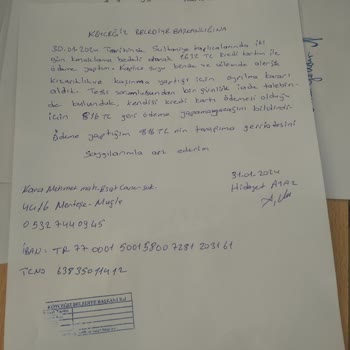 KÖYCEĞİZ BELEDİYE BAŞKANLIĞINA
30.01.2024 Tarihinde Sultaniye kaplıcalarında iki
gün konaklama bedeli olarak 1632 TL kredi kartım ile
ödeme yaptım. Kaplıca suyu bende ve ailemde alerjik
kızarıklık ve kaşınma yaptığı için ayrılma kararı
aldık. Tesis sorumlusundan bir günlük iade talebin-
de bulunduk, kendisi kredi kartı ödemesi olduğu
için 816 TL geri ödeme yapamayacağını bildirdi.
Ödeme yaptığım 816 TL'nin tarafıma geri iadesini
Saygılarımla arz ederim
31.01.2024
Hidayet
Kara Mehmet mah. sok.
44/6 Menteşe-Muğla
0 532 744 0945
IBAN: TR 77 0001 5001 5800 7281 2031 61
TCNO 63835011412
KÖYCEĞİZ BELEDİYE BAŞKANLIĞI